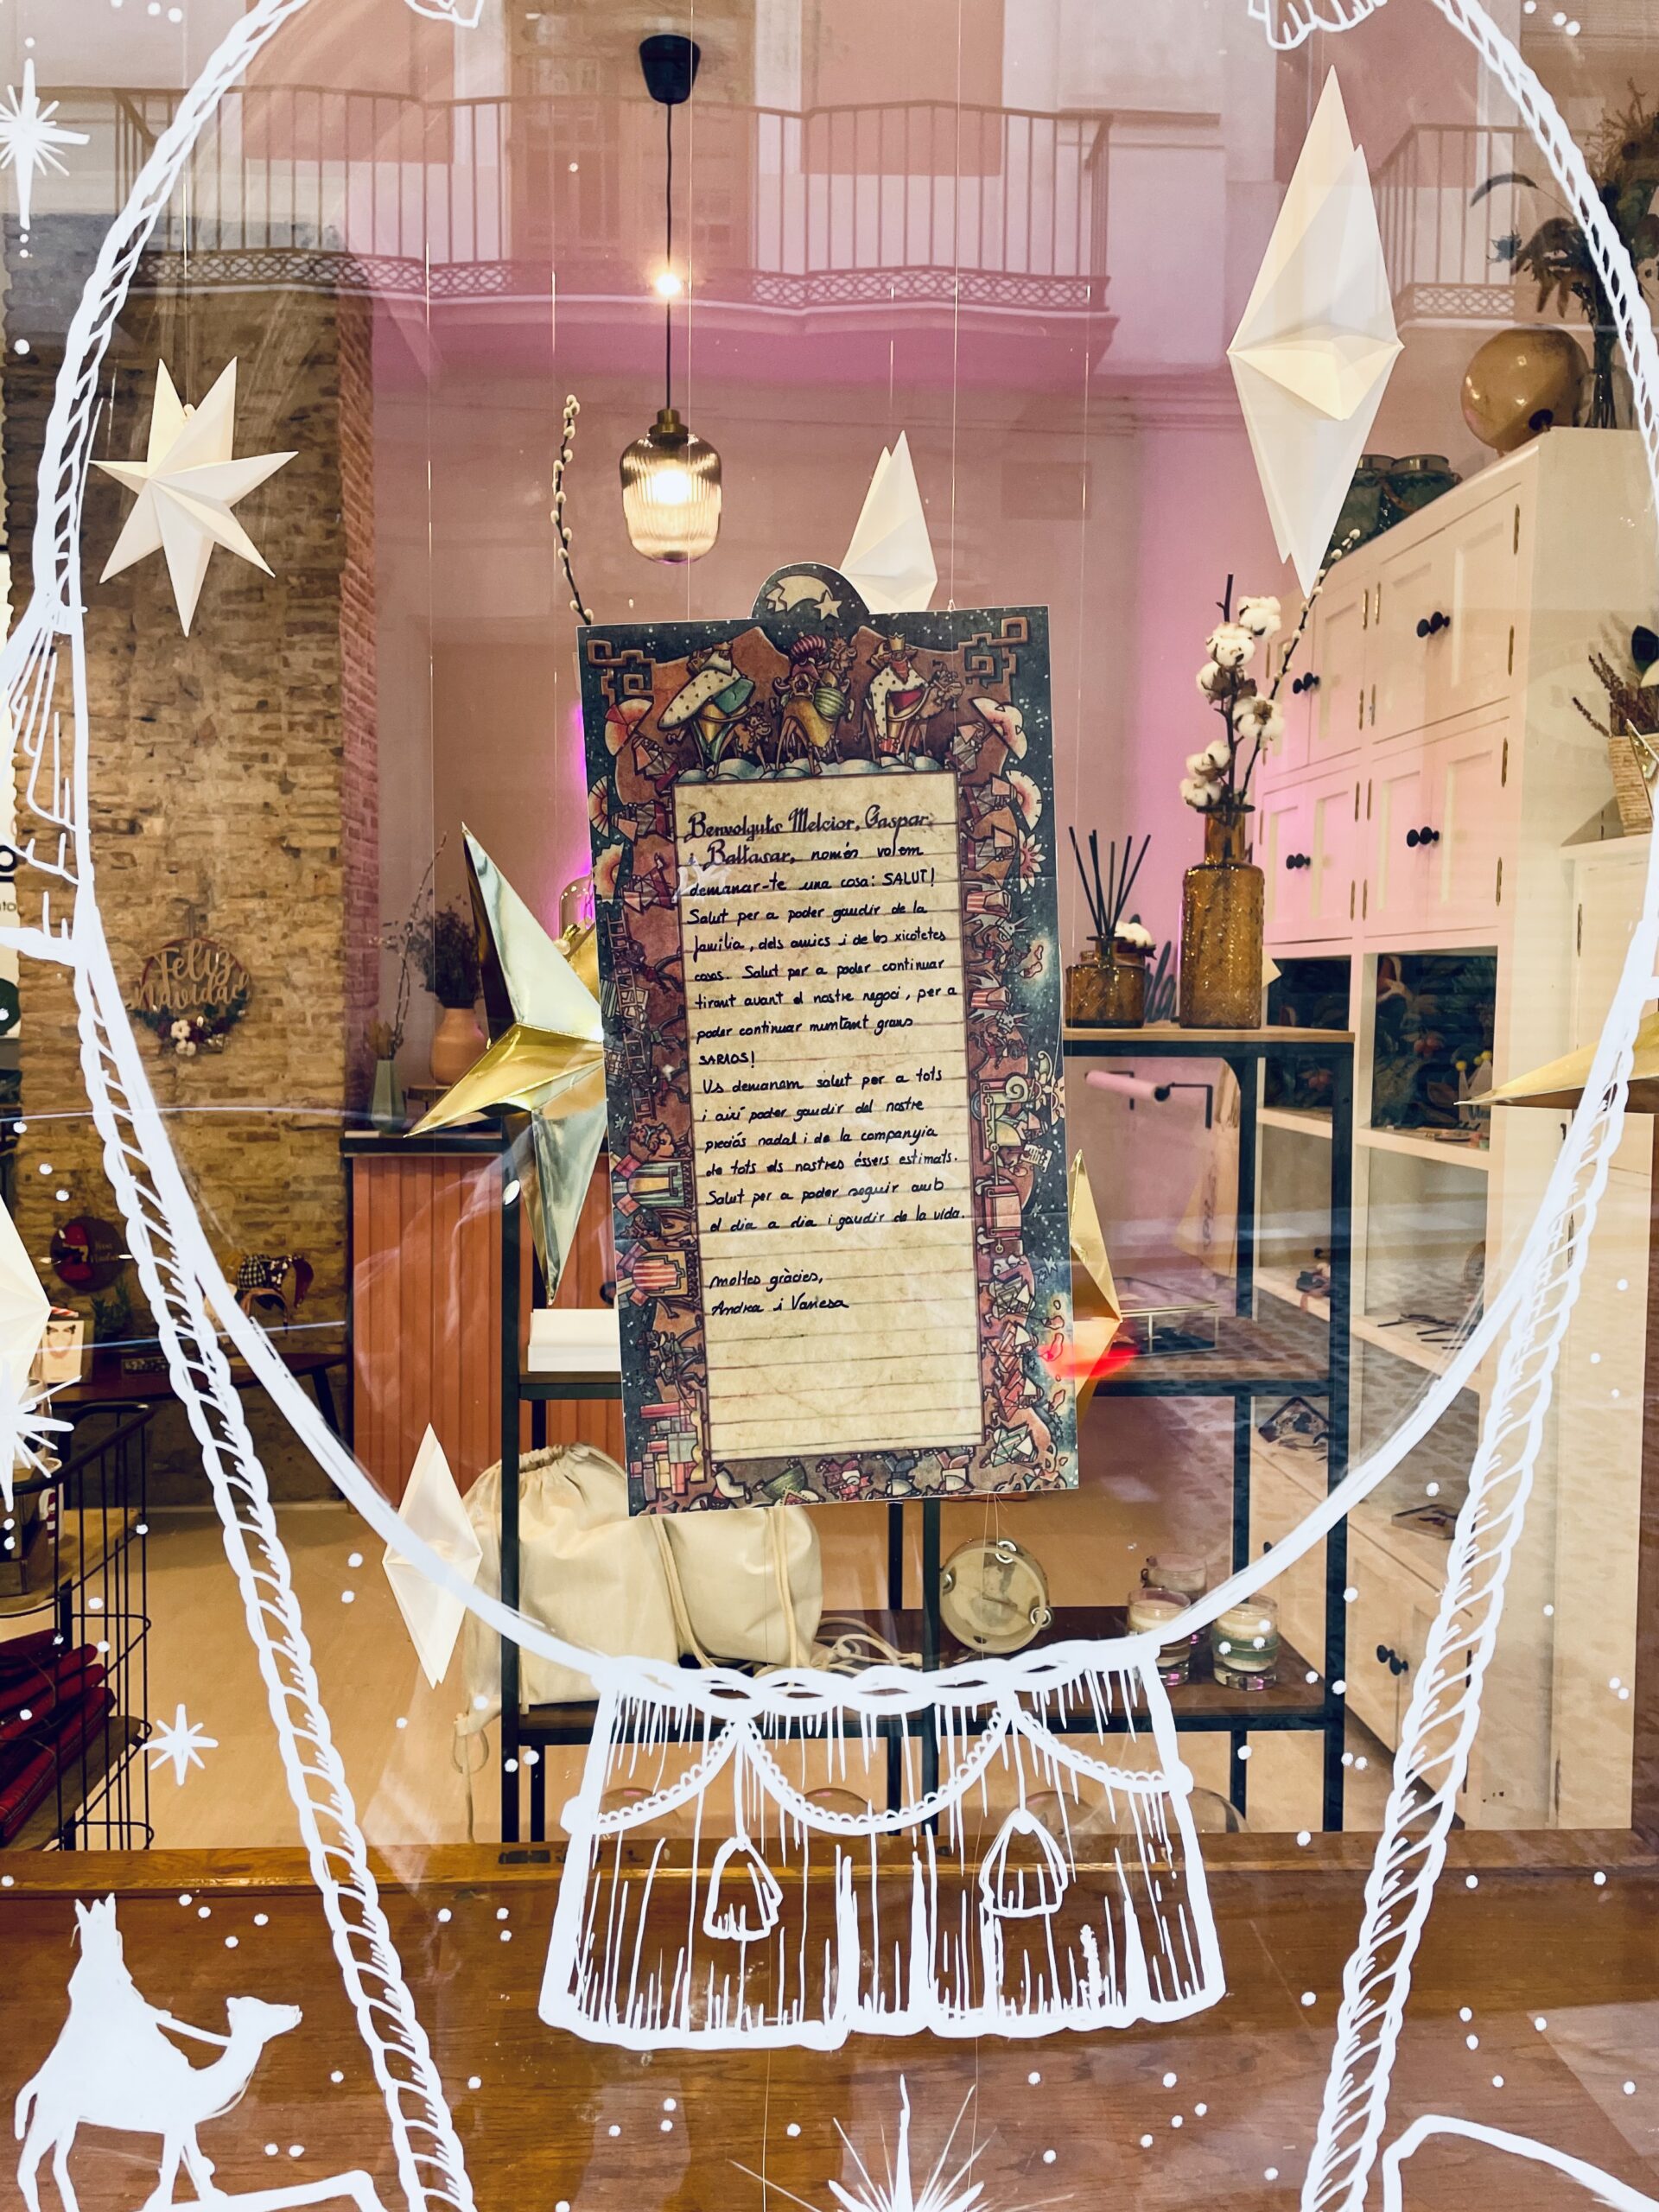 Feliz
Navidad
Benvolguts Melcior, Gaspar,
i Baltasar, només volem
demanar-te una cosa: SALUT!
Salut per a poder gaudir de la
família, dels amics i de les xicotetes
coses. Salut per a poder continuar
tirant avant el nostre negoci, per a
poder continuar muntant grans
SARAOS!
Us demanem salut per a tots
i així poder gaudir del nostre
preciós nadal i de la companyia
de tots els nostres éssers estimats.
Salut per a poder seguir amb
el dia a dia i gaudir de la vida.
moltes gràcies,
Andrea i Vanesa